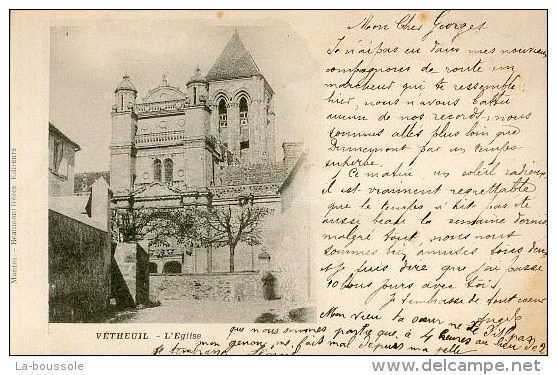 Mon Cher Georges
Je n'ai pas eu dans mes nouveaux
compagnons de route un
marcheur qui te ressemble
hier, nous n'avons battu
aucun de nos records, nous
sommes allés plus loin que
par un temps
superbe.
Ce matin un soleil radieux
il est vraiment regrettable
que le temps n'ait pas été
aussi beau la semaine dernière
malgré tout, nous nous
sommes bien amusés tous deux
et je puis dire que j'ai passé
10 bons jours avec toi.
Je t'embrasse de tout cœur
Mon vieu ta sœur me dis pas
que nous sommes partis que à 4 heures au lieu de 2
mon genou me fait mal depuis ma
Mantes - Beaumont frères, Editeurs
VÉTHEUIL. - L'Eglise
La-boussole
delcampe.net